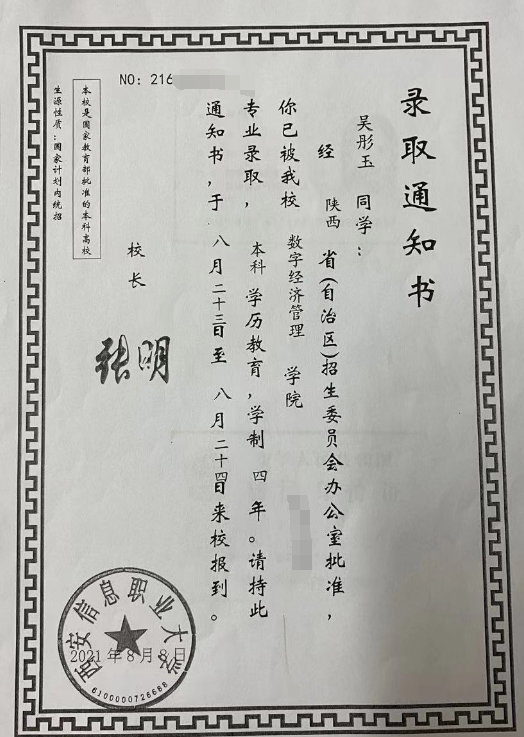 录取通知书
吴彤玉 同学：
经 陕西 省(自治区)招生委员会办公室批准，
你已被我校 数字经济管理 学院
专业录取，本科 学历教育，学制 四 年。请持此
通知书，于 八 月二十三日至 八 月二十四日来校报到。
校长
张明
本校是国家教育部批准的本科高校
生源性质：国家计划内统招
NO: 216
西安信息职业大学
2021年8月8日
6100000726688